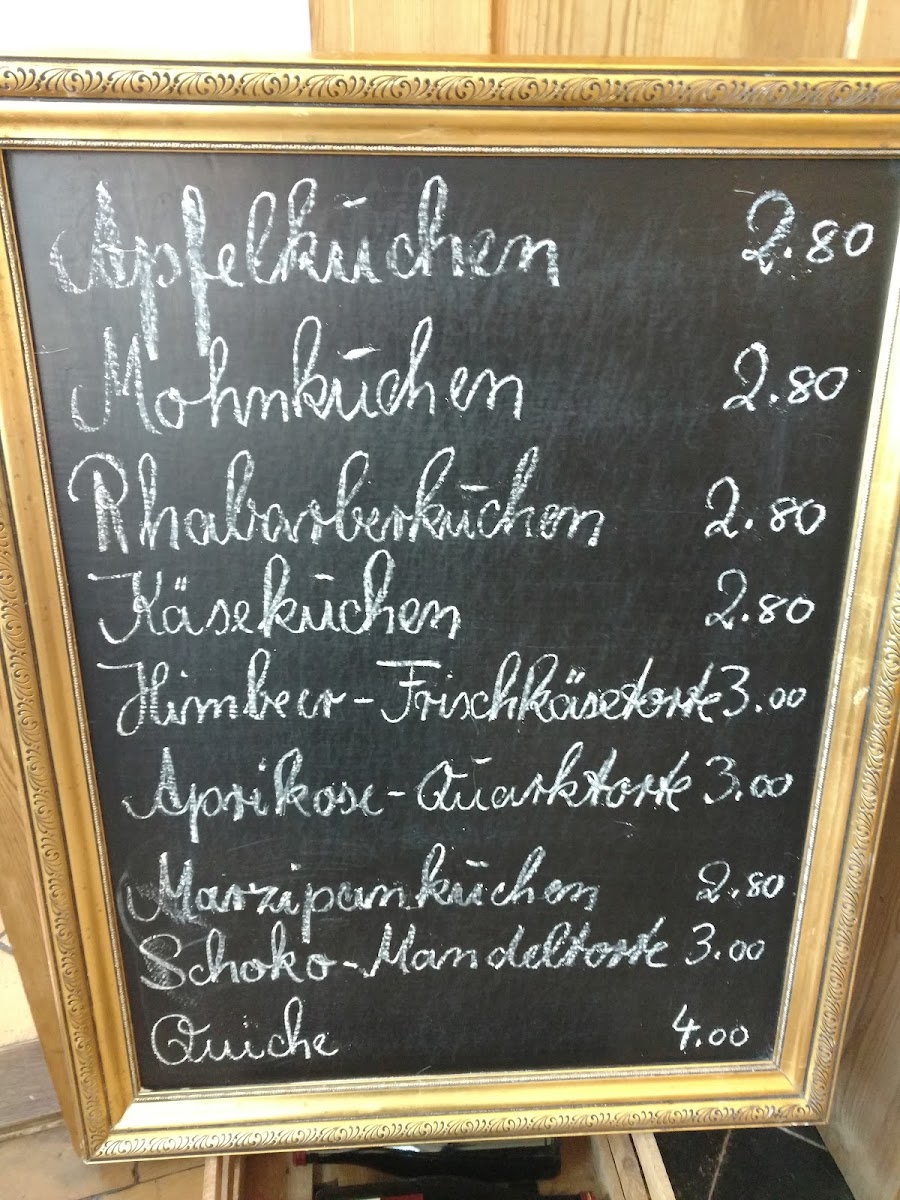 Apfelkuchen 2.80
Mohnkuchen 2.80
Rhabarberkuchen 2.80
Käsekuchen 2.80
Himbeer-Frischkäsetorte 3.00
Aprikose-Quarktorte 3.00
Marzipankuchen 2.80
Schoko-Mandeltorte 3.00
Quiche 4.00